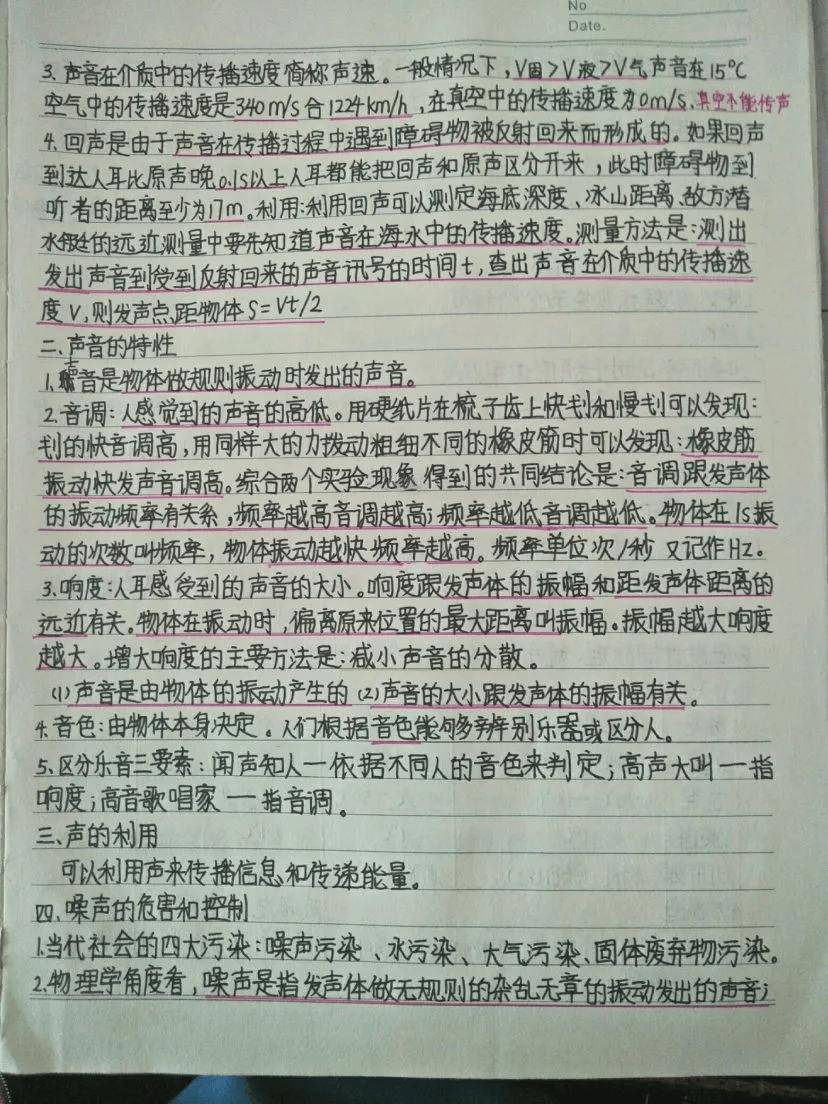 No
Date.
3.声音在介质中的传播速度简称声速。一般情况下,V固>V液>V气声音在15℃
空气中的传播速度是340m/s合1224km/h,在真空中的传播速度为0m/s.真空不能传声
4.回声是由于声音在传播过程中遇到障碍物被反射回来而形成的。如果回声
到达人耳比原声晚0.1s以上人耳都能把回声和原声区分开来,此时障碍物到
听者的距离至少为17m。利用:利用回声可以测定海底深度、冰山距离、敌方潜
水艇的远近测量中要先知道声音在海水中的传播速度。测量方法是:测出
发出声音到受到反射回来的声音讯号的时间t,查出声音在介质中的传播速
度V,则发声点距物体S=Vt/2
二、声音的特性
1.声音是物体做规则振动时发出的声音。
2.音调:人感觉到的声音的高低。用硬纸片在梳子齿上快划和慢划可以发现:
划的快音调高,用同样大的力拨动粗细不同的橡皮筋时可以发现:橡皮筋
振动快发声音调高。综合两个实验现象得到的共同结论是:音调跟发声体
的振动频率有关系,频率越高音调越高;频率越低音调越低。物体在1s振
动的次数叫频率,物体振动越快频率越高。频率单位次/秒 又记作Hz。
3.响度:人耳感受到的声音的大小。响度跟发声体的振幅和距发声体距离的
远近有关。物体在振动时,偏离原来位置的最大距离叫振幅。振幅越大响度
越大。增大响度的主要方法是:减小声音的分散。
(1)声音是由物体的振动产生的(2)声音的大小跟发声体的振幅有关。
4.音色:由物体本身决定。人们根据音色能够辨别乐器或区分人。
5.区分乐音三要素:闻声知人一依据不同人的音色来判定;高声大叫一指
响度;高音歌唱家一指音调。
三、声的利用
可以利用声来传播信息和传递能量。
四.噪声的危害和控制
1.当代社会的四大污染:噪声污染、水污染、大气污染、固体废弃物污染。
2.物理学角度看,噪声是指发声体做无规则的杂乱无章的振动发出的声音;